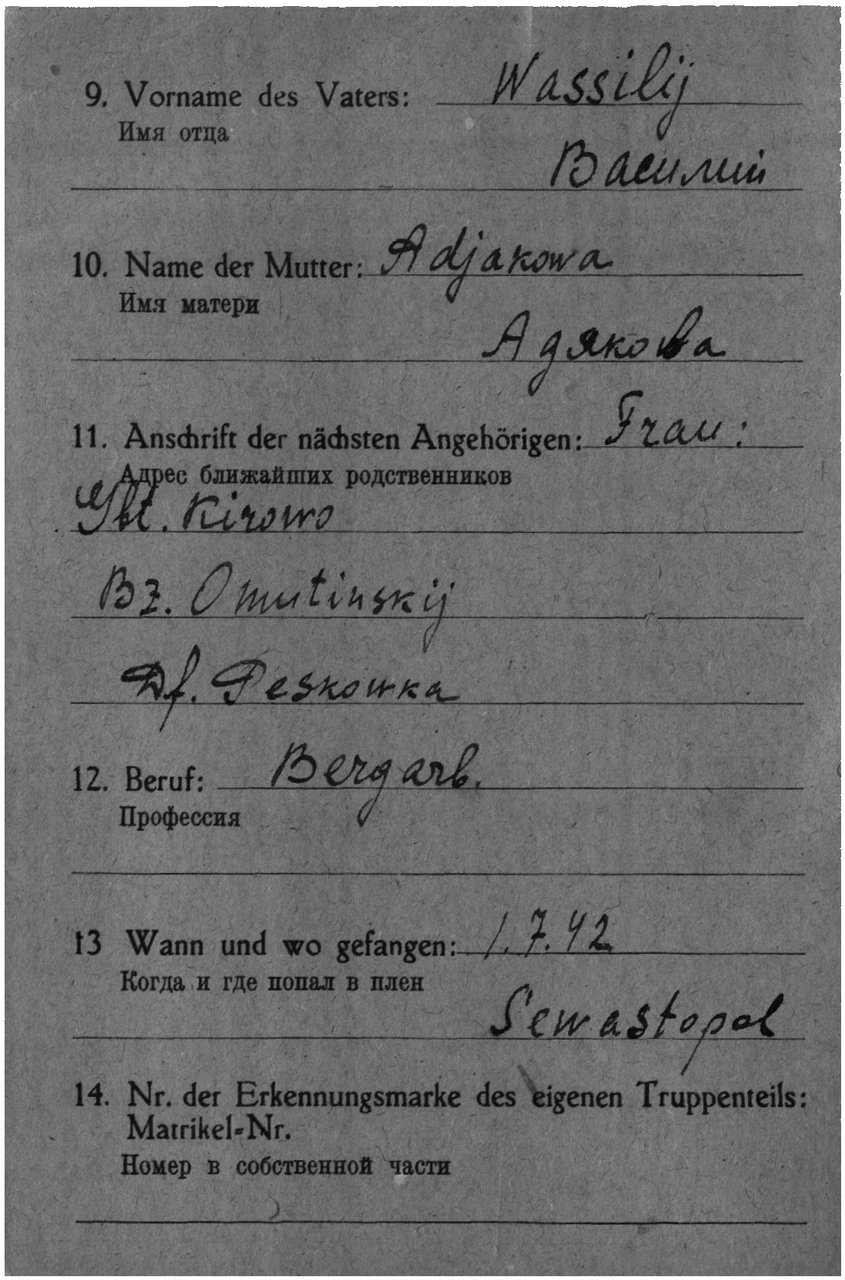 9. Vorname des Vaters: Wassilij
Имя отца
Василий
10. Name der Mutter: Adjakowa
Имя матери
Адякова
11. Anschrift der nächsten Angehörigen: Frau:
Адрес ближайших родственников
Gbt. Kirowo
Bz. Omutinskij
Df. Peskowka
12. Beruf: Bergarb.
Профессия
13 Wann und wo gefangen: 1.7.42
Когда и где попал в плен
Sewastopol
14. Nr. der Erkennungsmarke des eigenen Truppenteils:
Matrikel-Nr.
Номер в собственной части